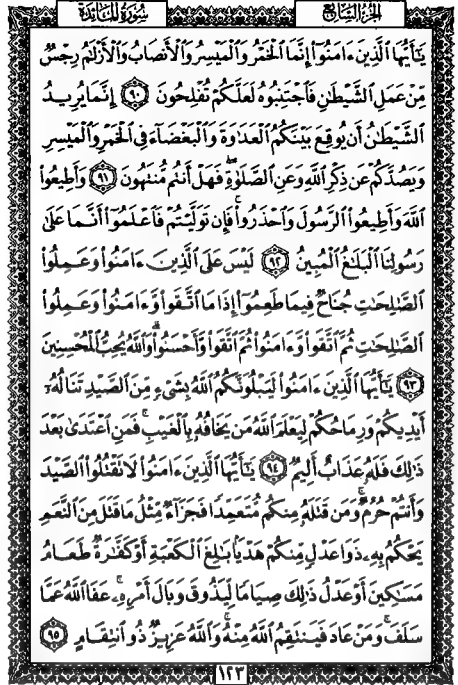 الجزء السابع
سُورَةُ المَائدة
يَٰٓأَيُّهَا ٱلَّذِينَ ءَامَنُوٓاْ إِنَّمَا ٱلۡخَمۡرُ وَٱلۡمَيۡسِرُ وَٱلۡأَنصَابُ وَٱلۡأَزۡلَٰمُ رِجۡسٞ
مِّنۡ عَمَلِ ٱلشَّيۡطَٰنِ فَٱجۡتَنِبُوهُ لَعَلَّكُمۡ تُفۡلِحُونَ ٩٠ إِنَّمَا يُرِيدُ
ٱلشَّيۡطَٰنُ أَن يُوقِعَ بَيۡنَكُمُ ٱلۡعَدَٰوَةَ وَٱلۡبَغۡضَآءَ فِي ٱلۡخَمۡرِ وَٱلۡمَيۡسِرِ
وَيَصُدَّكُمۡ عَن ذِكۡرِ ٱللَّهِ وَعَنِ ٱلصَّلَوٰةِۖ فَهَلۡ أَنتُم مُّنتَهُونَ ٩١ وَأَطِيعُواْ
ٱللَّهَ وَأَطِيعُواْ ٱلرَّسُولَ وَٱحۡذَرُواْۚ فَإِن تَوَلَّيۡتُمۡ فَٱعۡلَمُوٓاْ أَنَّمَا عَلَىٰ
رَسُولِنَا ٱلۡبَلَٰغُ ٱلۡمُبِينُ ٩٢ لَيۡسَ عَلَى ٱلَّذِينَ ءَامَنُواْ وَعَمِلُواْ
ٱلصَّٰلِحَٰتِ جُنَاحٞ فِيمَا طَعِمُوٓاْ إِذَا مَا ٱتَّقَواْ وَّءَامَنُواْ وَعَمِلُواْ
ٱلصَّٰلِحَٰتِ ثُمَّ ٱتَّقَواْ وَّءَامَنُواْ ثُمَّ ٱتَّقَواْ وَّأَحۡسَنُواْۚ وَٱللَّهُ يُحِبُّ ٱلۡمُحۡسِنِينَ
٩٣ يَٰٓأَيُّهَا ٱلَّذِينَ ءَامَنُواْ لَيَبۡلُوَنَّكُمُ ٱللَّهُ بِشَيۡءٖ مِّنَ ٱلصَّيۡدِ تَنَالُهُۥٓ
أَيۡدِيكُمۡ وَرِمَاحُكُمۡ لِيَعۡلَمَ ٱللَّهُ مَن يَخَافُهُۥ بِٱلۡغَيۡبِۚ فَمَنِ ٱعۡتَدَىٰ بَعۡدَ
ذَٰلِكَ فَلَهُۥ عَذَابٌ أَلِيمٞ ٩٤ يَٰٓأَيُّهَا ٱلَّذِينَ ءَامَنُواْ لَا تَقۡتُلُواْ ٱلصَّيۡدَ
وَأَنتُمۡ حُرُمٞۚ وَمَن قَتَلَهُۥ مِنكُم مُّتَعَمِّدٗا فَجَزَآءٞ مِّثۡلُ مَا قَتَلَ مِنَ ٱلنَّعَمِ
يَحۡكُمُ بِهِۦ ذَوَا عَدۡلٖ مِّنكُمۡ هَدۡيَۢا بَٰلِغَ ٱلۡكَعۡبَةِ أَوۡ كَفَّٰرَةٞ طَعَامُ
مَسَٰكِينَ أَوۡ عَدۡلُ ذَٰلِكَ صِيَامٗا لِّيَذُوقَ وَبَالَ أَمۡرِهِۦۗ عَفَا ٱللَّهُ عَمَّا
سَلَفَۚ وَمَنۡ عَادَ فَيَنتَقِمُ ٱللَّهُ مِنۡهُۚ وَٱللَّهُ عَزِيزٞ ذُو ٱنتِقَامٍ ٩٥
١٢٣